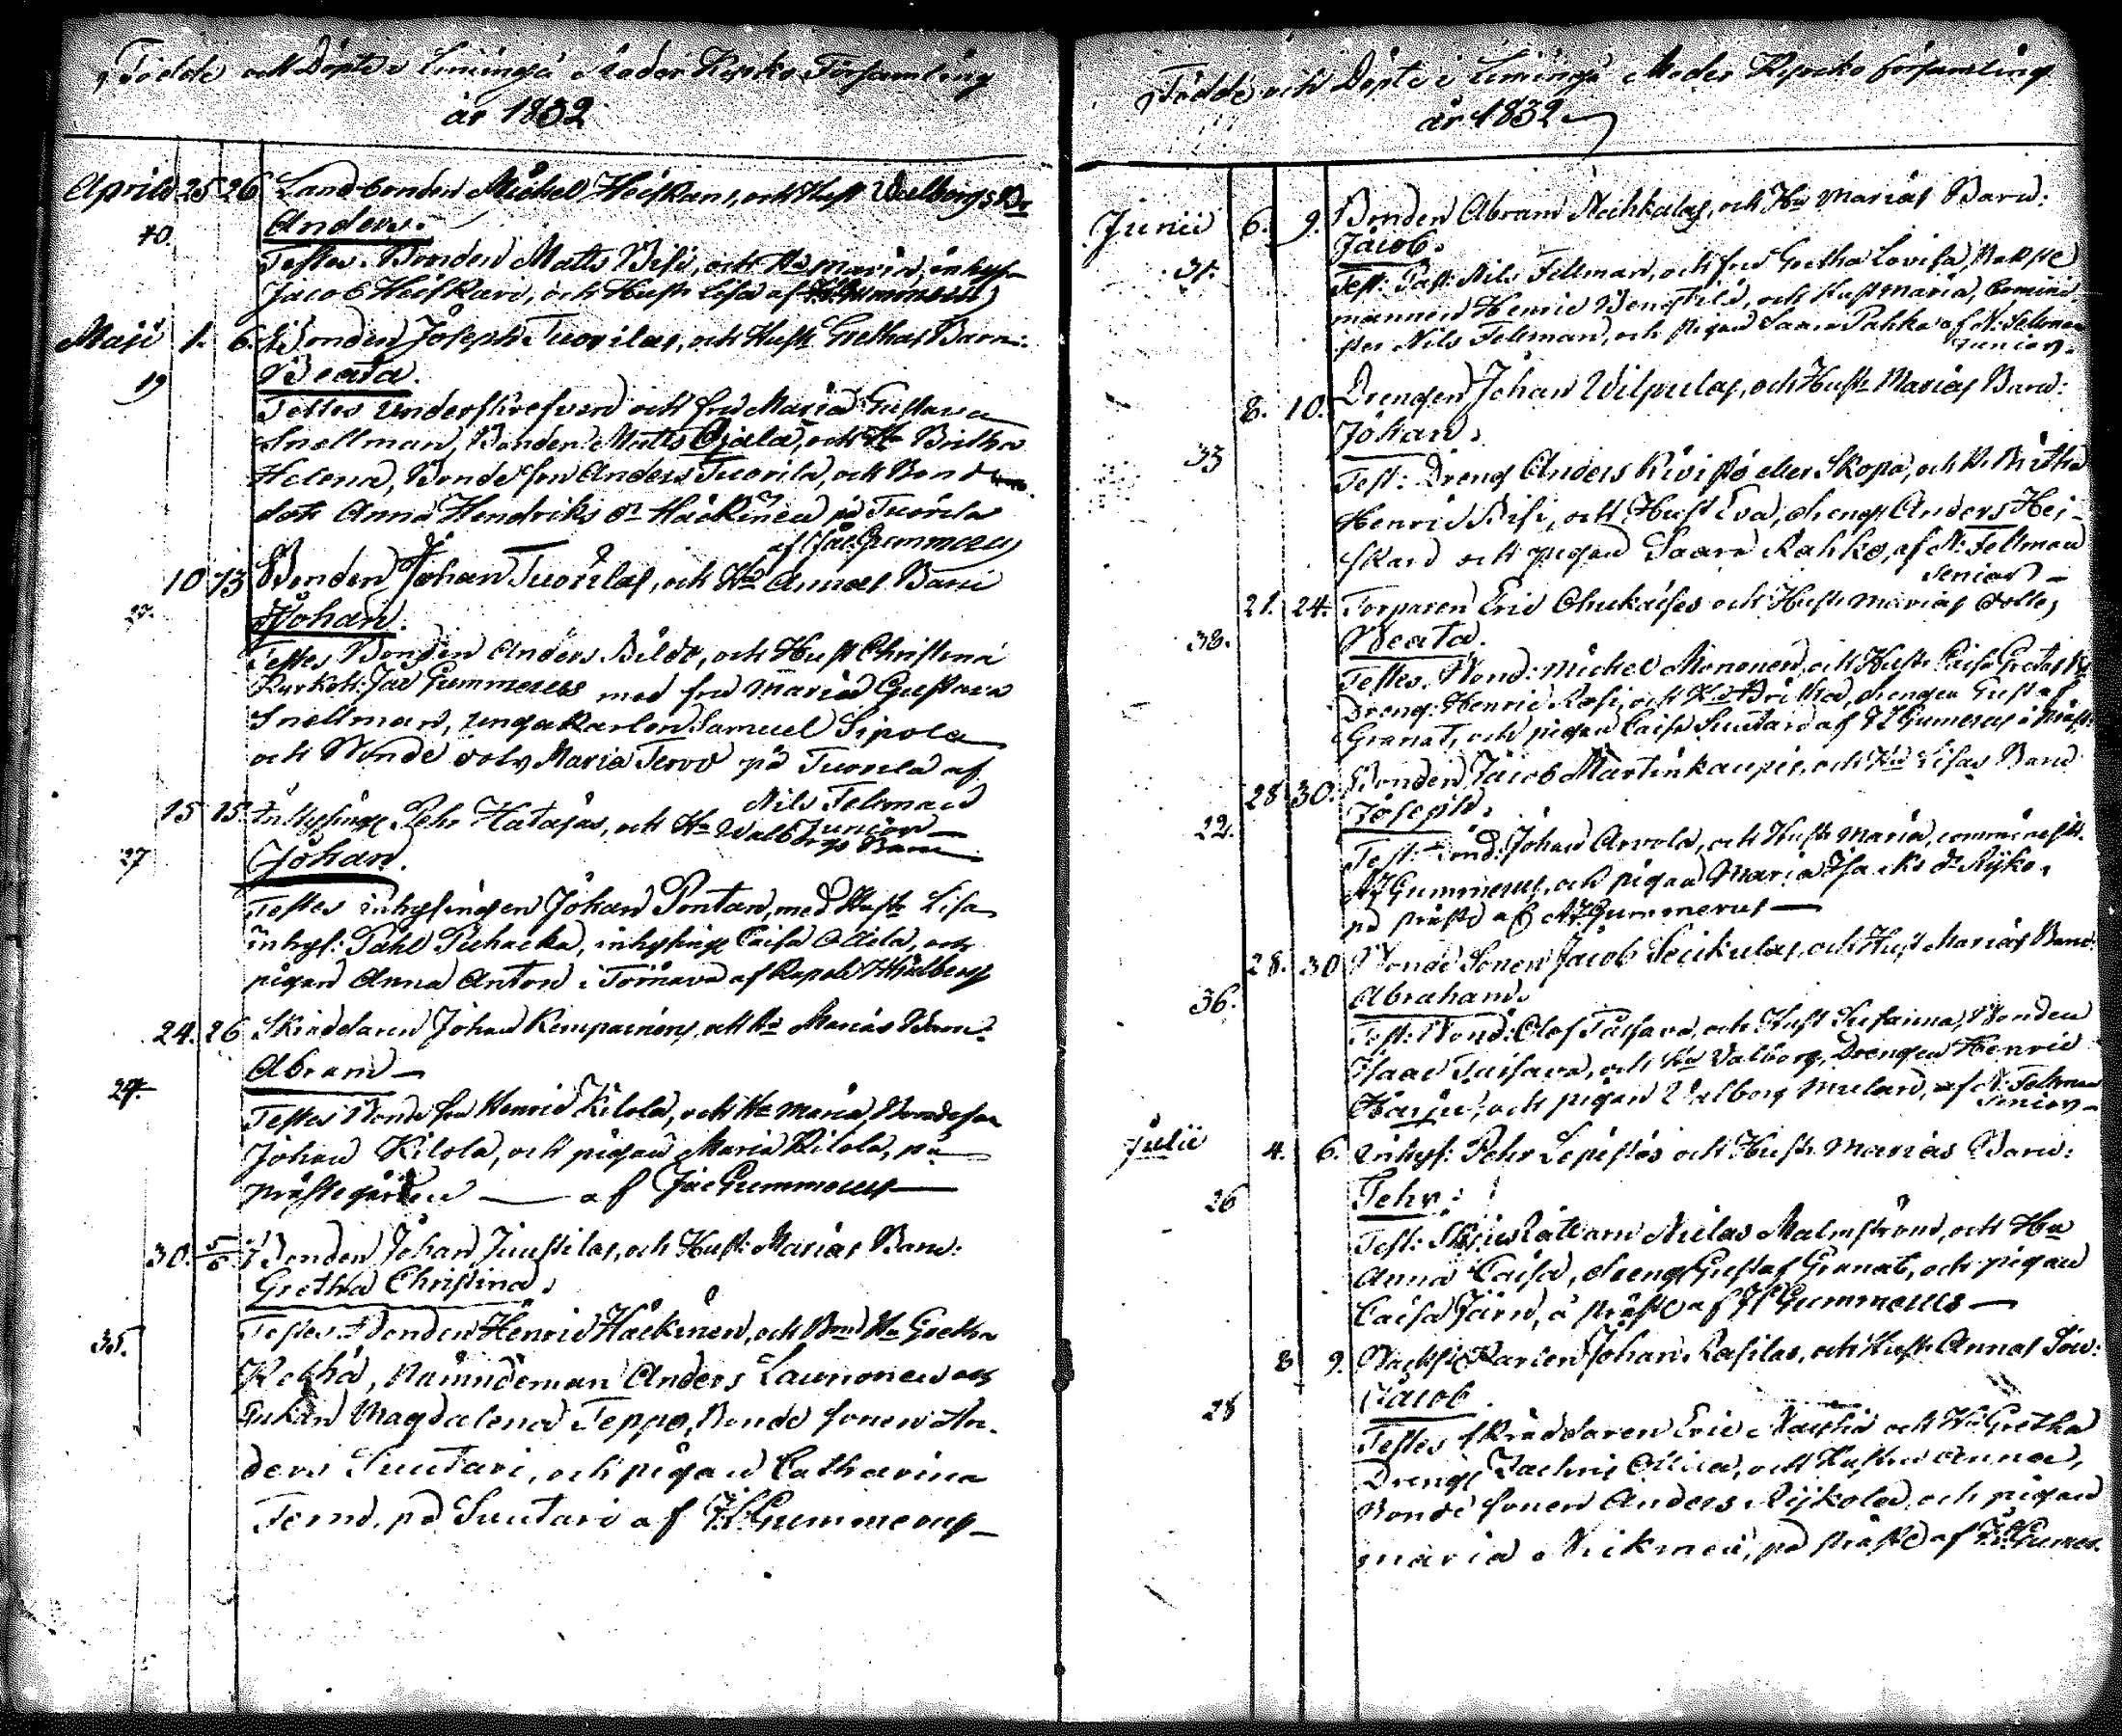 Födde och Döpte i Limingå Moder Kyrko Församling
år 1832
Aprill 25 26 Landbonden Michel Heiskans, och Hust Walborgs Bn
40. Anders.
Testes. Bonden Matts Bisi, och Hu Maria, inhys
Jacob Heiskari, och Hustr Lisa af
Maji 1. 6. Bonden Joseph Tuorilas, och Hustr Grethas Barn:
19 Beata.
Testes underskrefven och fru Maria Gustava
Snellman, Bonden Matts Ojala, och Hu Britha
Helena, Bondeson Anders Tuorila, och Bonde
dotr Anna Hendriks dr Häckinen på Tuorila
af Jac Gummerus
10 13 Bonden Johan Tuorilas, och Hu Annas Barn
27. Johan.
Testes Bonden Anders Bildo, och Hust Christina
Kyrkoh: Jac Gummerus med fru Maria Gustava
Snellman, unga karlen Samuel Sipola
och Bonde dotr Maria Tervo på Tuorila af
Nils Fellman
Junior
15 15. Inhysing Pehr Hatajas, och Hu Walborgs Barn
27 Johan.
Testes inhysingen Johan Pontan, med Hustr Lisa
inhys: Påhl Puhacka, inhysing Caisa Ollila, och
pigan Anna Anton i Törnävä af Kapell Hialberg
24. 26 Skräddaren Johan Kempainens, och Hu Marias Barn:
27. Abram
Testes Bonde son Henric Kilola, och Hu Maria, Bondeson
Johan Kilola, och pigan Maria Kilola, på
Prästegården af Jac Gummerus
30. 5/6 Bonden Johan Juustilas, och Hust: Marias Barn:
Gretha Christina.
35. Testes Bonden Henric Häckinen, och Hu Gretha
Nämndeman Anders Launonen och
Enkan Magdalena Teppo, Bonde sonen An-
ders Suutari, och pigan Catharina
på Suutari af Gummerus
Födde och Döpte i Limingå Moder Kyrko församling
år 1832
Junii 6. 9. Bonden Abram Nähkalas, och Hu Marias Barn:
31. Jacob.
Test: Past: Nils Fellman, och fru Gretha Lovisa,
mannen Henric Bengskild, och Hust Maria, Commi
ster Nils Fellman, och pigan Saara Pahka af N: Fellman
junior.
8. 10. Drengen Johan Wilpulas, och Hustr Marias Barn:
33 Johan.
Test: Dreng Anders Kivistö eller Skopa, och H. Britha
Henric Bisi, och Hust Eva, dreng Anders Hei-
skari och pigan Saara Rahko, af N: Fellman
Senior
21. 24. Torparen Eric Ohukaises och Hustr Marias dotter
38. Beata.
Testes. Bond: Michel Mononen, och Hustr Caisa Greta
Dreng: Henric Rasi, och Hu Britha, drengen Gustaf
Granat, och pigan Caisa Suutari af Gumerus å Präst:
28 30. Bonden Jacob Martinkaupis, och Hu Lisas Barn
22. Joseph.
Test: Bond: Johan Arvola, och Hustr Maria, comminist:
Gummerus, och pigan Maria Isacks dr Ryko,
på Präste af Gummerus
28. 30 Bonde Sonen Jacob Seckulas, och Hust Marias Barn:
36. Abraham.
Test: Bond: Olof Tuisava, och Hust Susanna, Bonden
Isaac Tuisava, och Hu Valborg, Drengen Henric
Harju, och pigan Valborg Mulari, af N: Fellman
Senior
Julii 4. 6. Inhys: Pehr Lepistös och Hustr. Marias Barn:
26 Pehr:
Test: Niclas Malmström, och Hu
Anna Caisa, dreng Gustaf Granat, och pigan
Caisa Järv, å Präste af Gummerus
8 9. Backstu Karlen Johan Rasilas, och Hustr Annas Son:
28 Jacob.
Testes skräddaren Eric och Hu Gretha
Dreng Zachris Ollila, och Hustru Anna,
Bonde sonen Anders Rykola, och pigan
Maria på Präste af